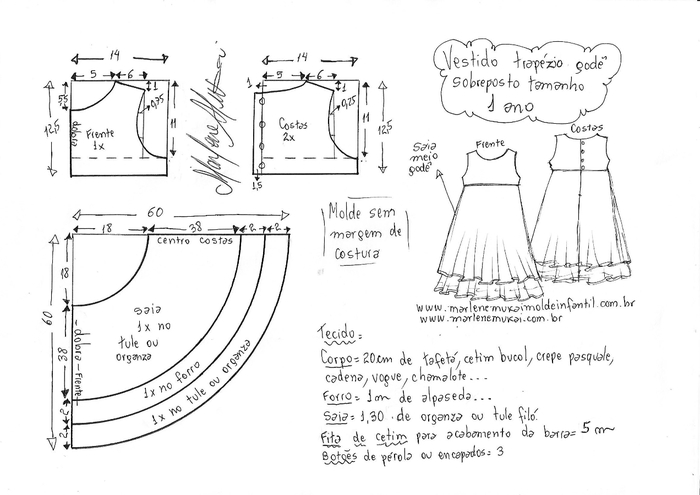 14
5
6
1
3,5
0,75
12,5
11
dobra
Frente
1x
Marlene Mukai
14
1
5
6
1
0,75
12,5
11
Costas
2x
1,5
Vestido trapézio godê
sobreposto tamanho
1 ano
Saia
meio
godê
Frente
Costas
60
18
38
2
2
centro costas
18
60
38
2
2
-dobra-Frente-
saia
1x no
tule ou
organza
1x no forro
1x no tule ou organza
Molde sem
margem de
costura
www.marlenemukaimoldeinfantil.com.br
www.marlenemukai.com.br
Tecido:
Corpo=20cm de tafetá, cetim bucol, crepe pasquale,
cadena, vogue, chamalote...
Forro= 1m de alpaseda...
Saia= 1,30 de organza ou tule filó.
Fita de cetim para acabamento da barra= 5 cm
Botões de pérola ou encapados= 3